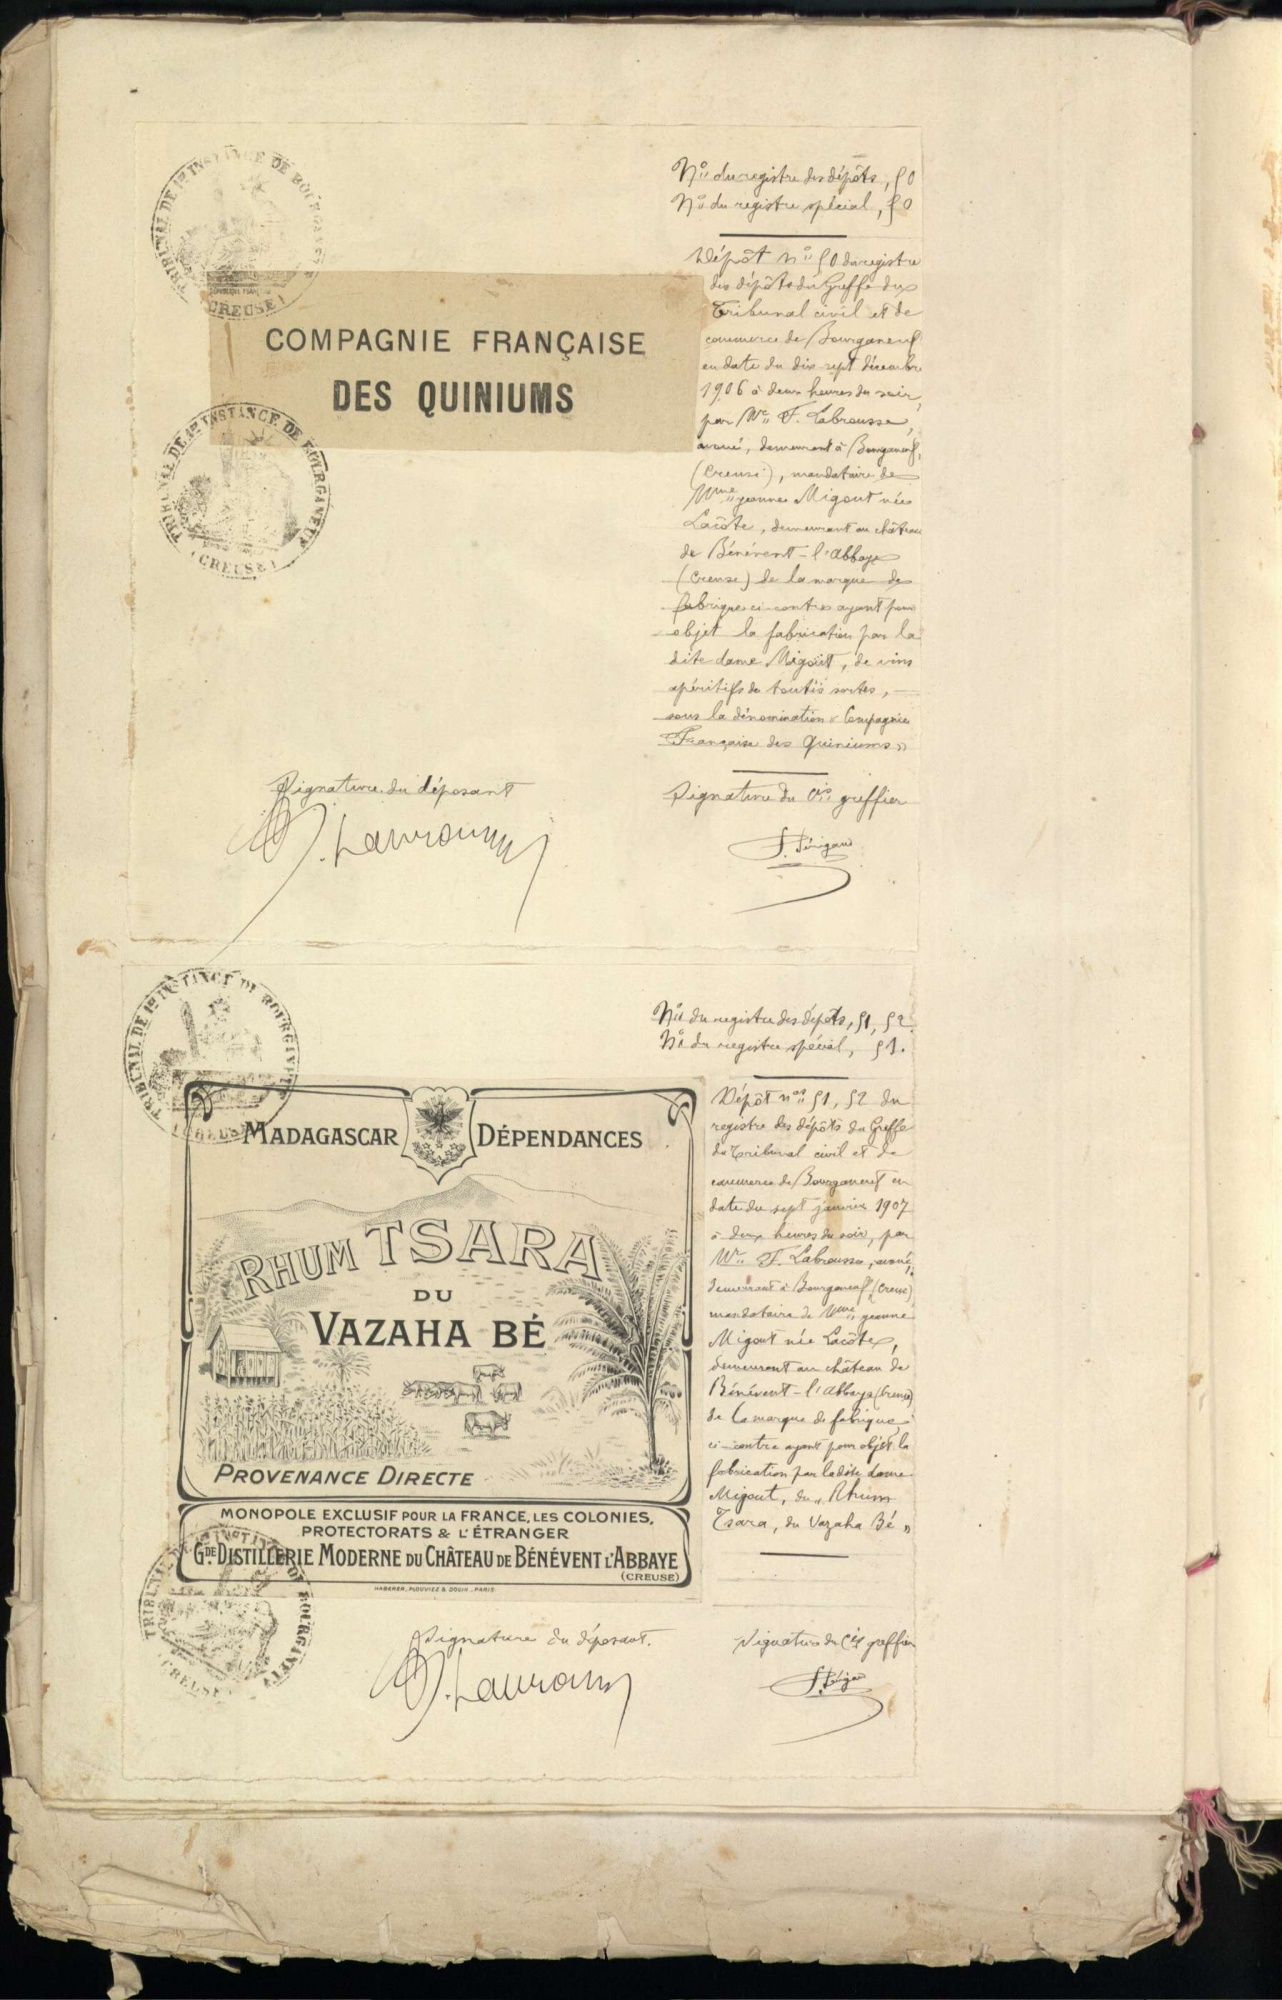 TRIBUNAL DE 1re INSTANCE DE BOURGANEUF
(CREUSE)
COMPAGNIE FRANÇAISE
DES QUINIUMS
TRIBUNAL DE 1re INSTANCE DE BOURGANEUF
(CREUSE)
No du registre des dépôts, 50
No du registre spécial, 50
Dépôt no 50 du registre
des dépôts du Greffe du
Tribunal civil et de
commerce de Bourganeuf
en date du dix sept décembre
1906 à deux heures du soir,
par Me F. Labrousse,
avoué, demeurant à Bourganeuf,
(Creuse), mandataire de
Mme Jeanne Migout née
Lacôte, demeurant au château
de Bénévent-l'Abbaye
(Creuse) de la marque de
fabrique ci-contre ayant pour
objet la fabrication par la
dite dame Migout, de vins
apéritifs de toutes sortes,
sous la dénomination « Compagnie
Française des Quiniums »
Signature du déposant
Signature du Cis greffier
TRIBUNAL DE 1re INSTANCE DE BOURGANEUF
(CREUSE)
No du registre des dépôts, 51, 52.
No du registre spécial, 51.
MADAGASCAR DÉPENDANCES
RHUM TSARA
DU
VAZAHA BÉ
PROVENANCE DIRECTE
MONOPOLE EXCLUSIF POUR LA FRANCE, LES COLONIES,
PROTECTORATS & L'ÉTRANGER
GDE DISTILLERIE MODERNE DU CHÂTEAU DE BÉNÉVENT L'ABBAYE
(CREUSE)
HABERER, PLOUVIEZ & DOUIN_PARIS
Dépôt nos 51, 52 du
registre des dépôts du Greffe
du Tribunal civil et de
commerce de Bourganeuf en
date du sept janvier 1907
à deux heures du soir, par
Me F. Labrousse, avoué,
demeurant à Bourganeuf (Creuse)
mandataire de Mme Jeanne
Migout née Lacôte,
demeurant au château de
Bénévent-l'Abbaye (Creuse)
de la marque de fabrique
ci-contre ayant pour objet la
fabrication par ladite dame
Migout, du « Rhum
Tsara, du Vazaha Bé »
TRIBUNAL DE 1re INSTANCE DE BOURGANEUF
(CREUSE)
Signature du déposant.
Signature du Cis greffier